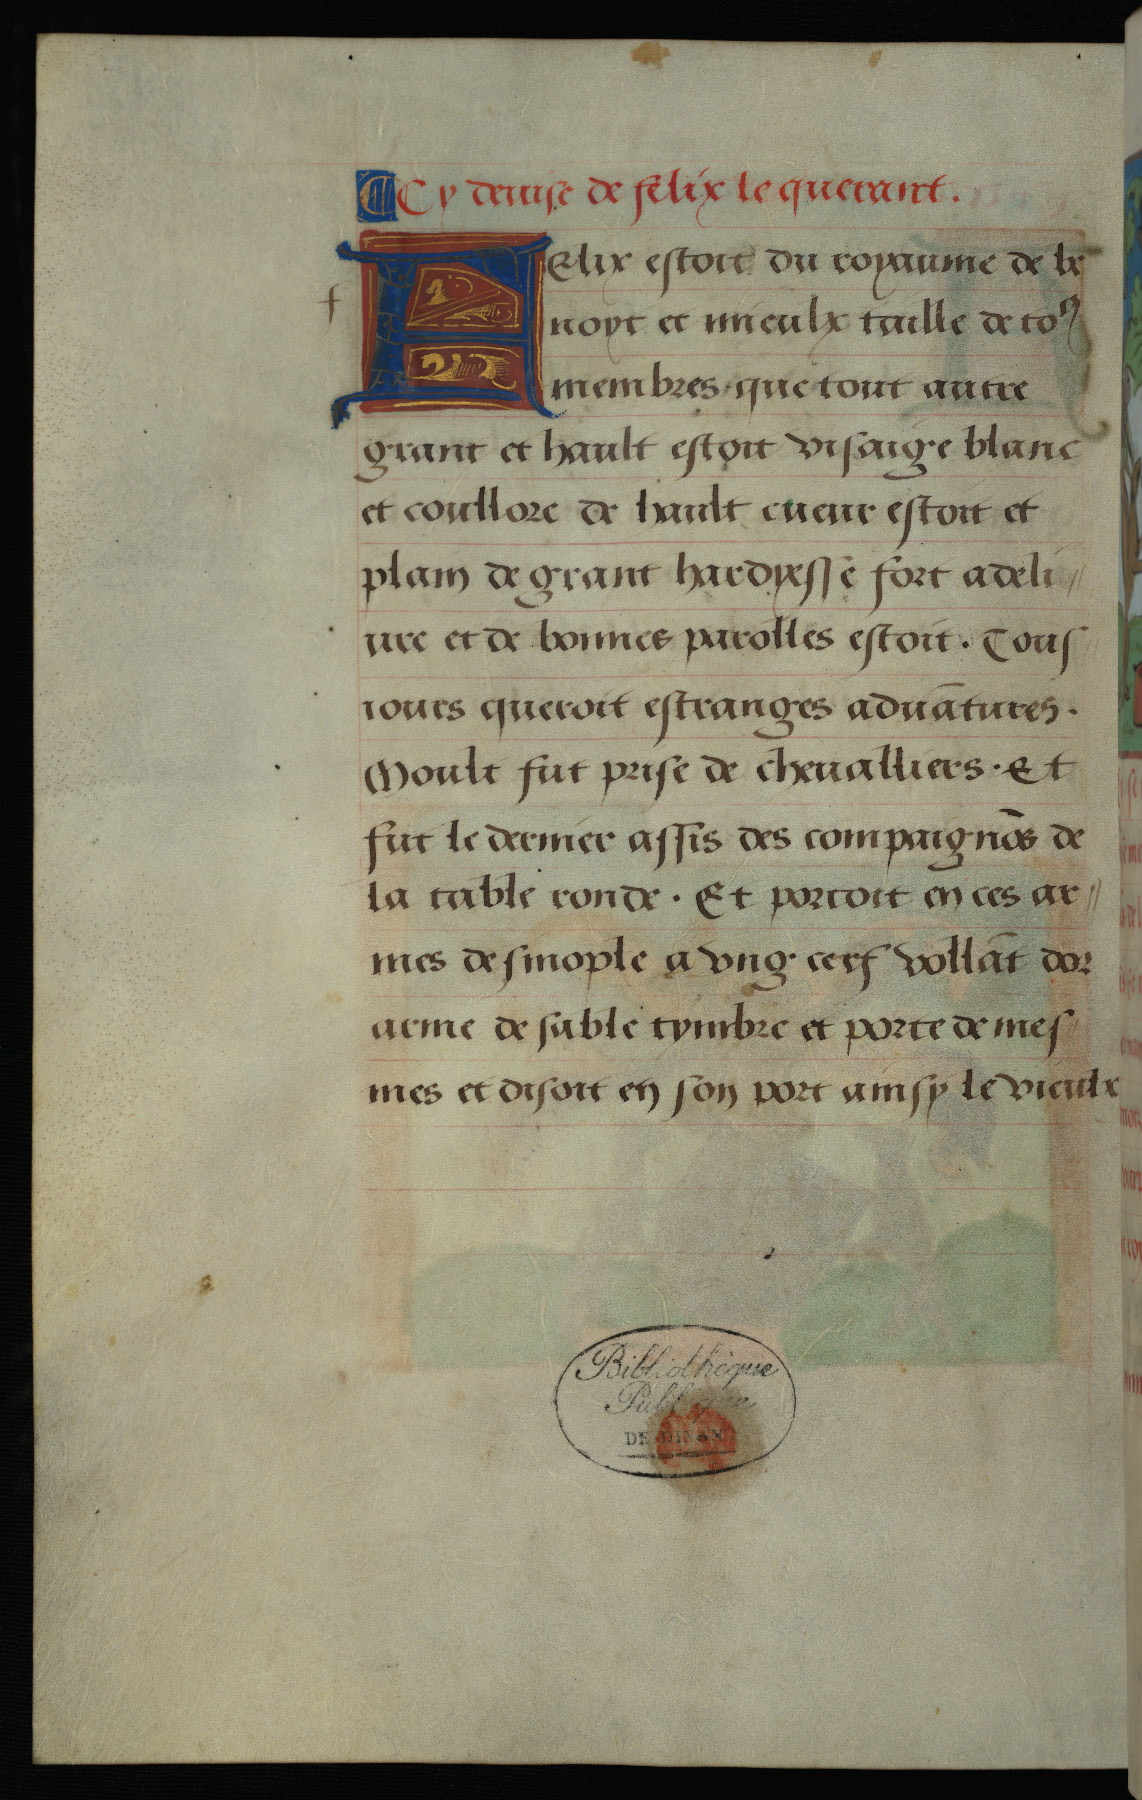 Cy deuise de felix le querant.
f
Felix estoit du royaume de le
noys et mieulx taille de toꝰ
membres que tout autre
grant et hault estoit visaige blanc
et coullore de hault cueur estoit et
plain de grant hardyesse fort a deli//
ure et de bonnes parolles estoit. Tous//
iours queroit estranges aduātures.
Moult fut prise de cheualliers. Et
fut le dernier assis des compaignōs de
la table ronde. Et portoit en ces ar//
mes de sinople a vng cerf vollāt dor
arme de sable tymbre et porte de mes//
mes et disoit en son port ainsy le vieulx
Bibliothèque
Publique
DE DINAN